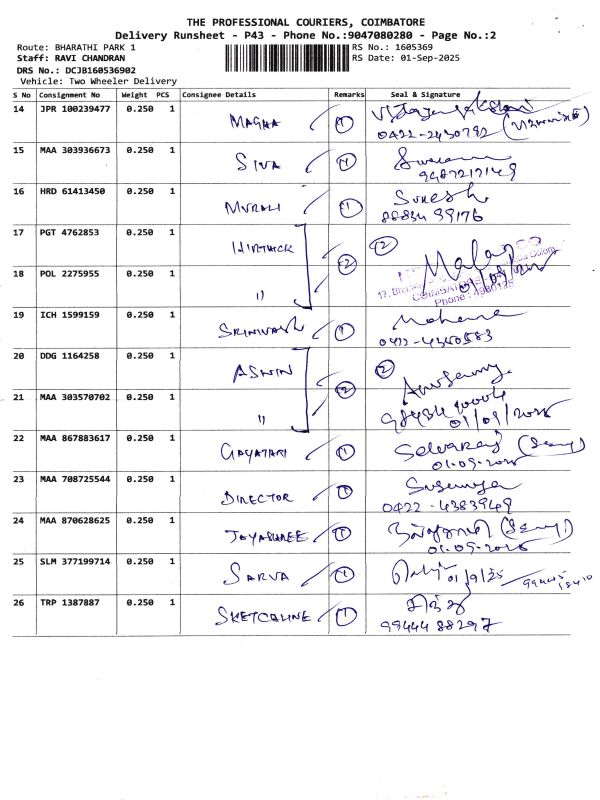 THE PROFESSIONAL COURIERS, COIMBATORE
Delivery Runsheet - P43 - Phone No.:9047080280 - Page No.:2
Route: BHARATHI PARK 1 RS No.: 1605369
Staff: RAVI CHANDRAN RS Date: 01-Sep-2025
DRS No.: DCJB160536902
Vehicle: Two Wheeler Delivery
S No Consignment No Weight PCS Consignee Details Remarks Seal & Signature
14 JPR 100239477 0.250 1 MAGHA 1
0422-2430792
15 MAA 303936673 0.250 1 SIVA 1
9487217149
16 HRD 61413450 0.250 1 MURALI 1 Suresh
88834 99176
17 PGT 4762853 0.250 1 HIRTHICK 2 2
18 POL 2275955 0.250 1 " 01/09/2025
Phone : 4980125
19 ICH 1599159 0.250 1 SRINIVASH 1 Mohana
0422-4340583
20 DDG 1164258 0.250 1 ASWIN 2 2
21 MAA 303570702 0.250 1 "
01/09/2025
22 MAA 867883617 0.250 1 GAYATARI 1 Selvaraj
01-09-2025
23 MAA 708725544 0.250 1 DIRECTOR 1
0422-4383949
24 MAA 870628625 0.250 1 JOYASHREE 1
01-09-2025
25 SLM 377199714 0.250 1 SARVA 1 01/9/25
26 TRP 1387887 0.250 1 SKETCHLINE 1
99444 88297